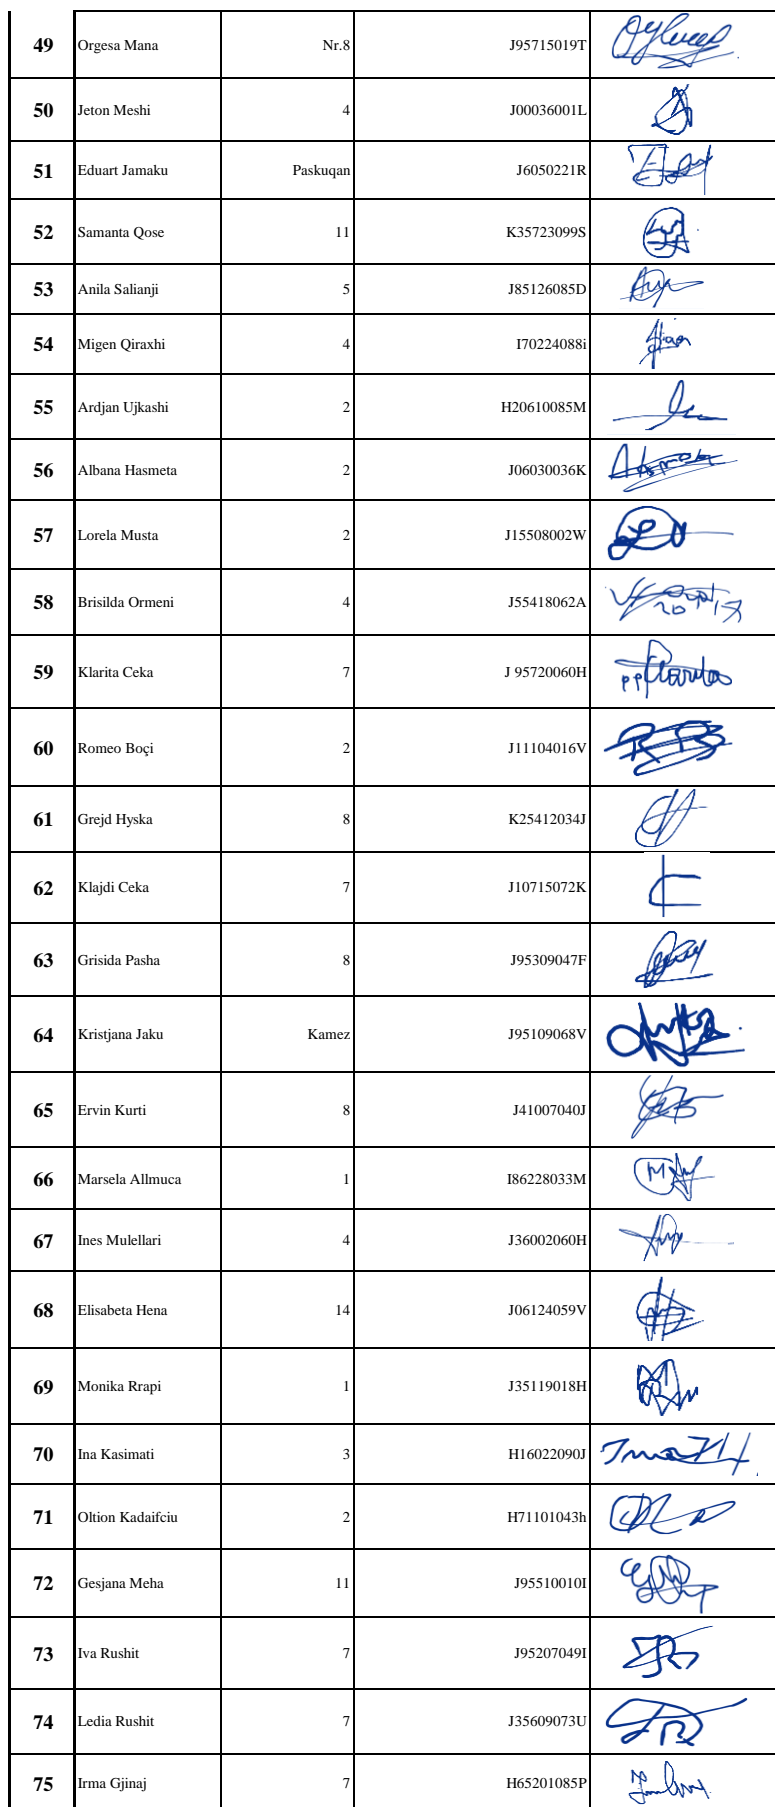 49 Orgesa Mana Nr.8 J95715019T
50 Jeton Meshi 4 J00036001L
51 Eduart Jamaku Paskuqan J6050221R
52 Samanta Qose 11 K35723099S
53 Anila Salianji 5 J85126085D
54 Migen Qiraxhi 4 I70224088i
55 Ardjan Ujkashi 2 H20610085M
56 Albana Hasmeta 2 J06030036K
57 Lorela Musta 2 J15508002W
58 Brisilda Ormeni 4 J55418062A
59 Klarita Ceka 7 J 95720060H
60 Romeo Boçi 2 J11104016V
61 Grejd Hyska 8 K25412034J
62 Klajdi Ceka 7 J10715072K
63 Grisida Pasha 8 J95309047F
64 Kristjana Jaku Kamez J95109068V
65 Ervin Kurti 8 J41007040J
66 Marsela Allmuca 1 I86228033M
67 Ines Mulellari 4 J36002060H
68 Elisabeta Hena 14 J06124059V
69 Monika Rrapi 1 J35119018H
70 Ina Kasimati 3 H16022090J
71 Oltion Kadaifciu 2 H71101043h
72 Gesjana Meha 11 J95510010I
73 Iva Rushit 7 J95207049I
74 Ledia Rushit 7 J35609073U
75 Irma Gjinaj 7 H65201085P